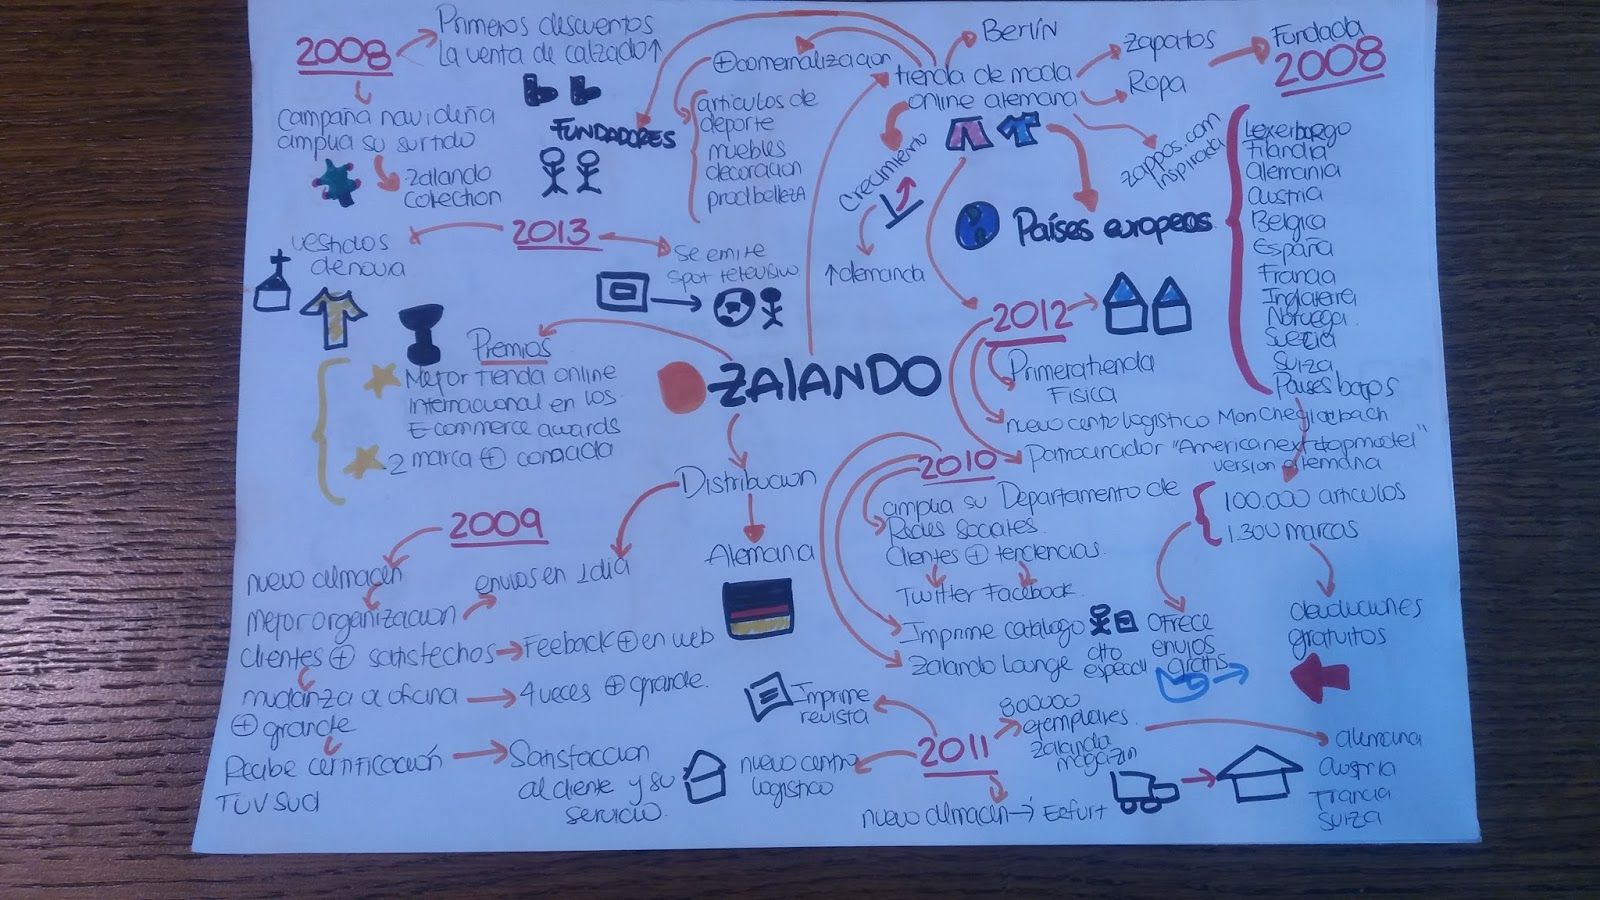 2008
Primeros descuentos
La venta de calzado↑
campaña navideña
amplia su surtido
Zalando
Colection
FUNDADORES
⊕comernalizacion
articulos de
deporte
muebles
decoracion
prod belleza
Berlín
tienda de moda
online alemana
Zapatos
Ropa
Fundada
2008
Zappos.com
Inspirada
Crecimiento
↑demanda
Países europeos
Lexerburgo
Filandia
Alemania
Austria
Belgica
España
Francia
Inglaterra
Noruega
Suecia
Suiza
Paises bajos
2013
vestidos
de novia
se emite
spot televisivo
Premios
Mejor tienda online
Internacional en los
E-commerce awards
2 marca ⊕ conocida
ZAlANDO
2012
Primera tienda
Fisica
nuevo cento logistico Monchegladbach
Patrocinador "America next topmodel"
version alemana
100.000 articulos
1.300 marcas
devoluciones
gratuitos
Ofrece
envios
gratis
Distribucion
Alemana
2010
amplia su Departamento de
Redes sociales
Clientes ⊕ tendencias
Twitter Facebook
Imprime catalogo
Zalando Lounge
dto
especial
2009
nuevo almacen
Mejor organizacion
envios en 1 dia
clientes ⊕ satisfechos
Feeback ⊕ en web
mudanza a oficina
⊕ grande
4 veces ⊕ grande.
Recibe certificacion
TUV Sud
Satisfaccion
al cliente y su
servicio.
2011
Imprime
revista
nuevo centro
logistico
800000
ejemplares
Zalando
magazin
alemana
austria
Francia
Suiza
nuevo almacen → Erfurt